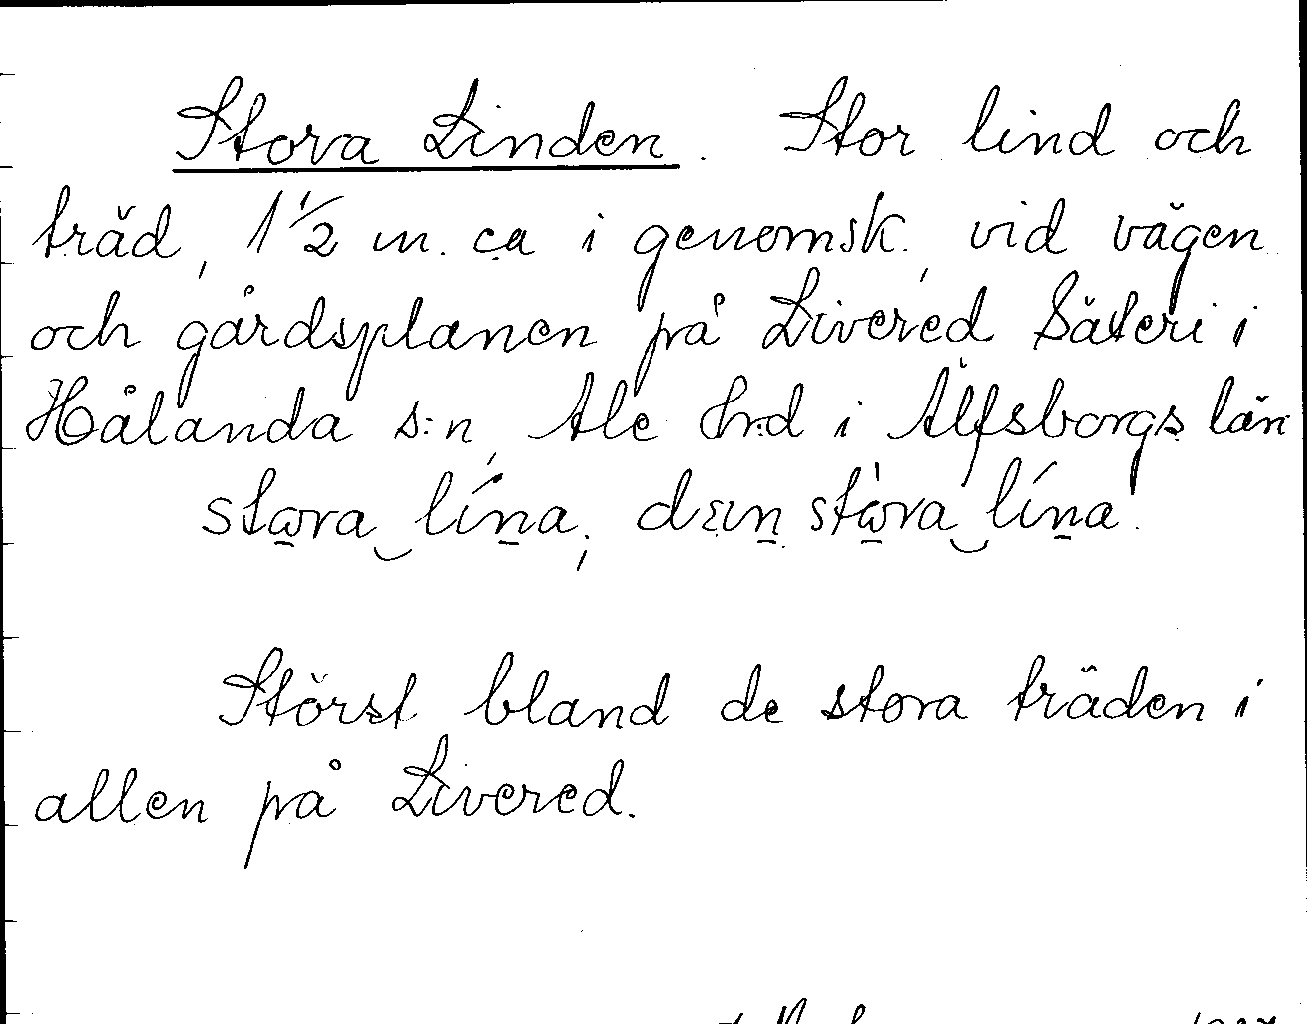 Stora Linden. Stor lind och
träd, 1 1/2 m. ca i genomsk., vid vägen
och gårdsplanen på Livered Säteri i
Hålanda s:n, Ale Hrd i Älfsborgs län
stora lina; stora lina.
Störst bland de stora träden i
allen på Livered.